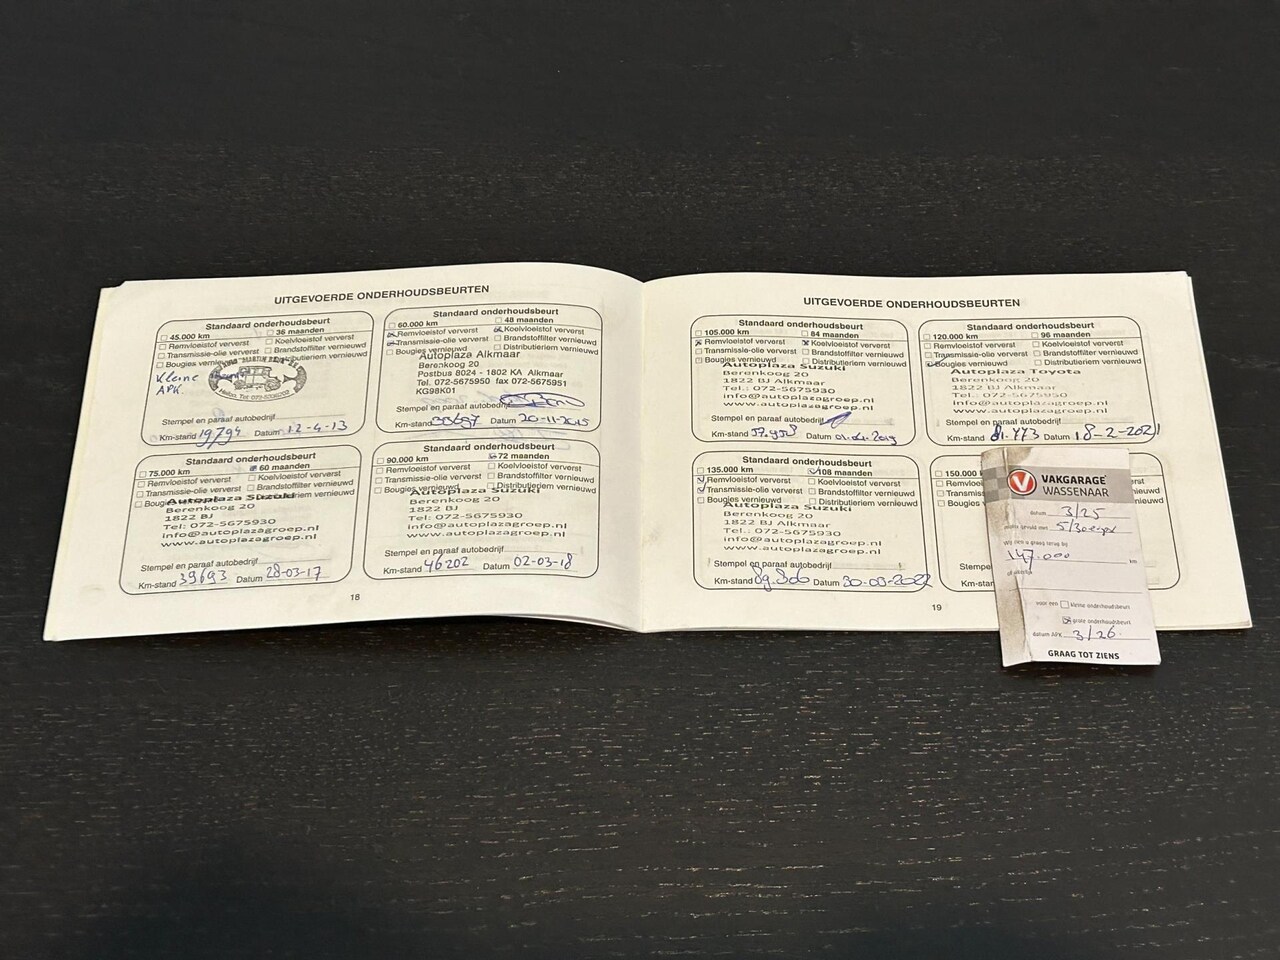 UITGEVOERDE ONDERHOUDSBEURTEN
Standaard onderhoudsbeurt
45.000 km 36 maanden
Remvloeistof ververst Koelvloeistof ververst
Transmissie-olie ververst Brandstoffilter vernieuwd
Bougies vernieuwd Distributieriem vernieuwd
Kleine
APK.
Stempel en paraaf autobedrijf
Km-stand 19794 Datum 12-4-13
Standaard onderhoudsbeurt
60.000 km 48 maanden
Remvloeistof ververst Koelvloeistof ververst
Transmissie-olie ververst Brandstoffilter vernieuwd
Bougies vernieuwd Distributieriem vernieuwd
Autoplaza Alkmaar
Berenkoog 20
Postbus 8024 - 1802 KA Alkmaar
Tel. 072-5675950 fax 072-5675951
KG98K01
Stempel en paraaf autobedrijf
Km-stand 30697 Datum 20-11-2015
Standaard onderhoudsbeurt
75.000 km 60 maanden
Remvloeistof ververst Koelvloeistof ververst
Transmissie-olie ververst Brandstoffilter vernieuwd
Bougies vernieuwd Distributieriem vernieuwd
Autoplaza Suzuki
Berenkoog 20
1822 BJ
Tel: 072-5675930
info@autoplazagroep.nl
www.autoplazagroep.nl
Stempel en paraaf autobedrijf
Km-stand 39693 Datum 28-03-17
Standaard onderhoudsbeurt
90.000 km 72 maanden
Remvloeistof ververst Koelvloeistof ververst
Transmissie-olie ververst Brandstoffilter vernieuwd
Bougies vernieuwd Distributieriem vernieuwd
Autoplaza Suzuki
Berenkoog 20
1822 BJ
Tel: 072-5675930
info@autoplazagroep.nl
www.autoplazagroep.nl
Stempel en paraaf autobedrijf
Km-stand 46202 Datum 02-03-18
18
UITGEVOERDE ONDERHOUDSBEURTEN
Standaard onderhoudsbeurt
105.000 km 84 maanden
Remvloeistof ververst Koelvloeistof ververst
Transmissie-olie ververst Brandstoffilter vernieuwd
Bougies vernieuwd Distributieriem vernieuwd
Autoplaza Suzuki
Berenkoog 20
1822 BJ Alkmaar
Tel.: 072-5675930
info@autoplazagroep.nl
www.autoplazagroep.nl
Stempel en paraaf autobedrijf
Km-stand Datum
Standaard onderhoudsbeurt
120.000 km 96 maanden
Remvloeistof ververst Koelvloeistof ververst
Transmissie-olie ververst Brandstoffilter vernieuwd
Bougies vernieuwd Distributieriem vernieuwd
Autoplaza Toyota
Berenkoog 20
1822 BJ Alkmaar
Tel.: 072-5675950
info@autoplazagroep.nl
www.autoplazagroep.nl
Km-stand 81.773 Datum 18-2-2021
Standaard onderhoudsbeurt
135.000 km 108 maanden
Remvloeistof ververst Koelvloeistof ververst
Transmissie-olie ververst Brandstoffilter vernieuwd
Bougies vernieuwd Distributieriem vernieuwd
Autoplaza Suzuki
Berenkoog 20
1822 BJ Alkmaar
Tel.: 072-5675930
info@autoplazagroep.nl
www.autoplazagroep.nl
Stempel en paraaf autobedrijf
Km-stand Datum 30-03-2022
150.000
Km-
19
VAKGARAGE
WASSENAAR
datum 3/25
gevuld met
Wij zien u graag terug bij
147.000 km
voor een kleine onderhoudsbeurt
grote onderhoudsbeurt
datum APK 3/26
GRAAG TOT ZIENS